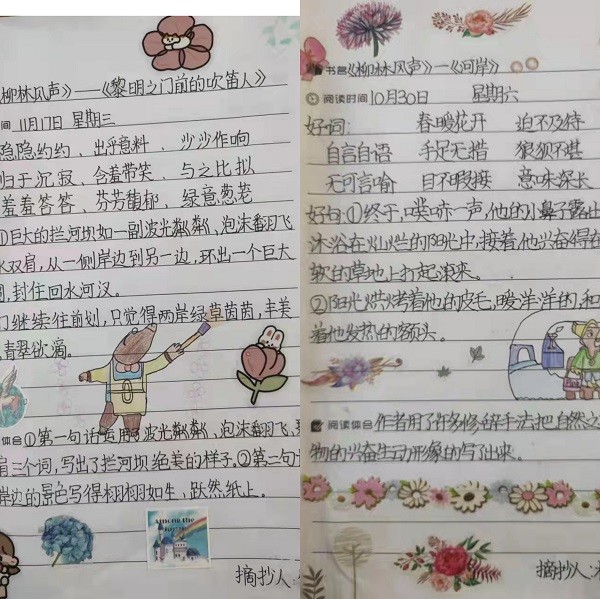 柳林风声》——《黎明之门前的吹笛人》
间 11月17日 星期三
隐隐约约、出乎意料、沙沙作响
归于沉寂、含羞带笑、与之比拟
羞羞答答、芬芳馥郁、绿意葱茏
①巨大的拦河坝如一副波光粼粼,泡沫翻飞
水双肩,从一侧岸边到另一边,环出一个巨大
封住回水河汊。
门继续往前划,只觉得两岸绿草茵茵,丰美
青翠欲滴。
体会①第一句话运用了波光粼粼,泡沫翻飞,
肩三个词,写出了拦河坝绝美的样子。②第二句
岸边的景色写得栩栩如生,跃然纸上。
Among the
摘抄人:
书名《柳林风声》—《河岸》
阅读时间 10月30日 星期六
好词: 春暖花开 迫不及待
自言自语 手足无措 狼狈不甚
无可言喻 目不暇接 意味深长
好句:①终于,噗哧一声,他的小鼻子露出
沐浴在灿烂的阳光中,接着,他兴奋得在
软的草地上打起滚来。
②阳光烘烤着他的皮毛,暖洋洋的,和
着他发热的额头。
阅读体会 作者用了许多修辞手法把自然之
物的兴奋生动形象的写出来。
摘抄人: